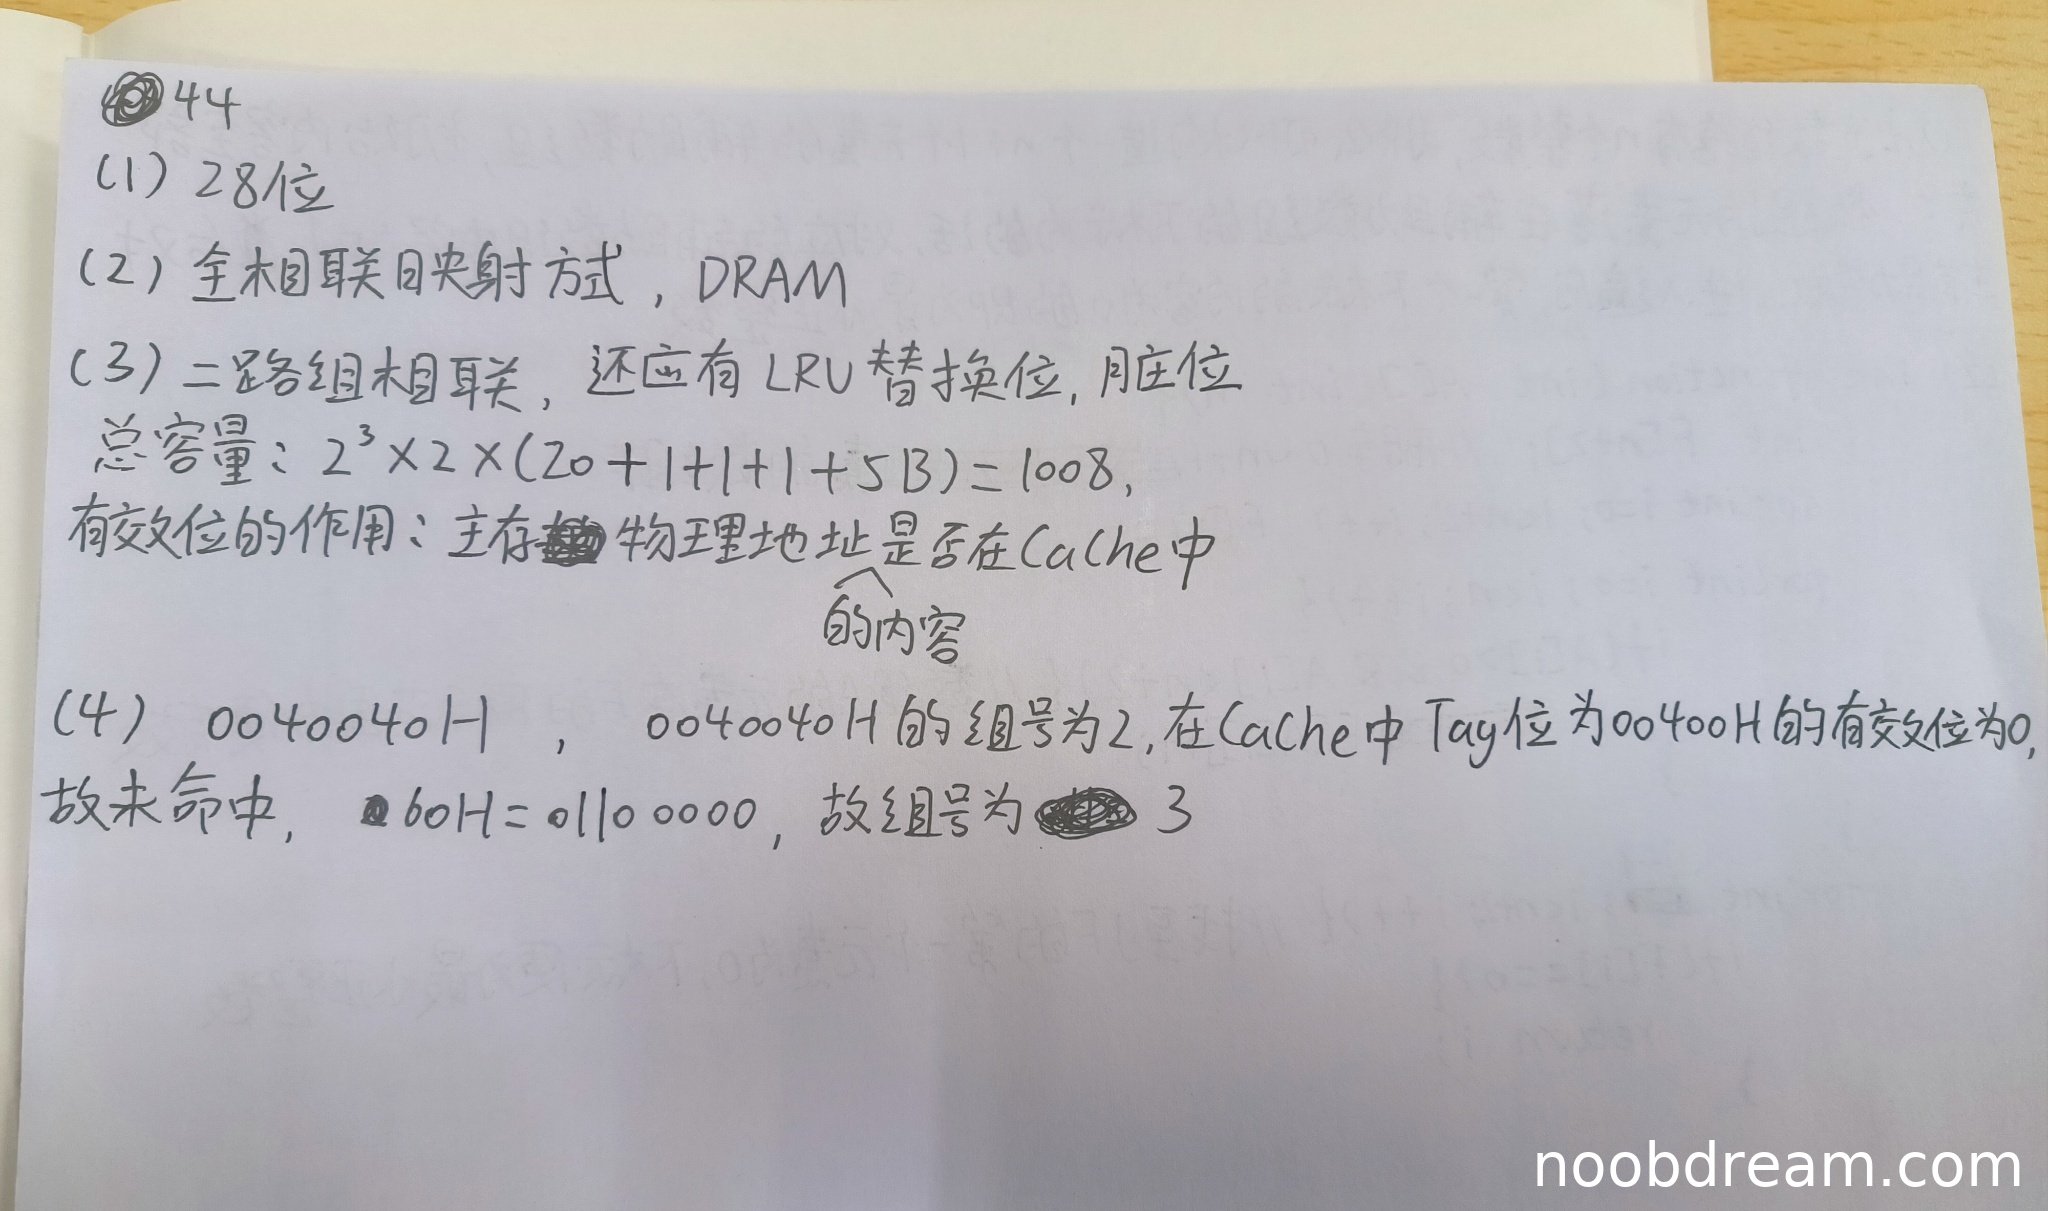 44
(1) 28位
(2) 全相联映射方式，DRAM
(3) 二路组相联，还应有LRU替换位，脏位
总容量：2³×2×(20+1+1+1+5B)=1008，
有效位的作用：主存物理地址是否在Cache中
的内容
(4) 0040040H ， 0040040H的组号为2,在Cache中Tag位为00400H的有效位为0,
故未命中， 60H=01100000，故组号为 3
noobdream.com